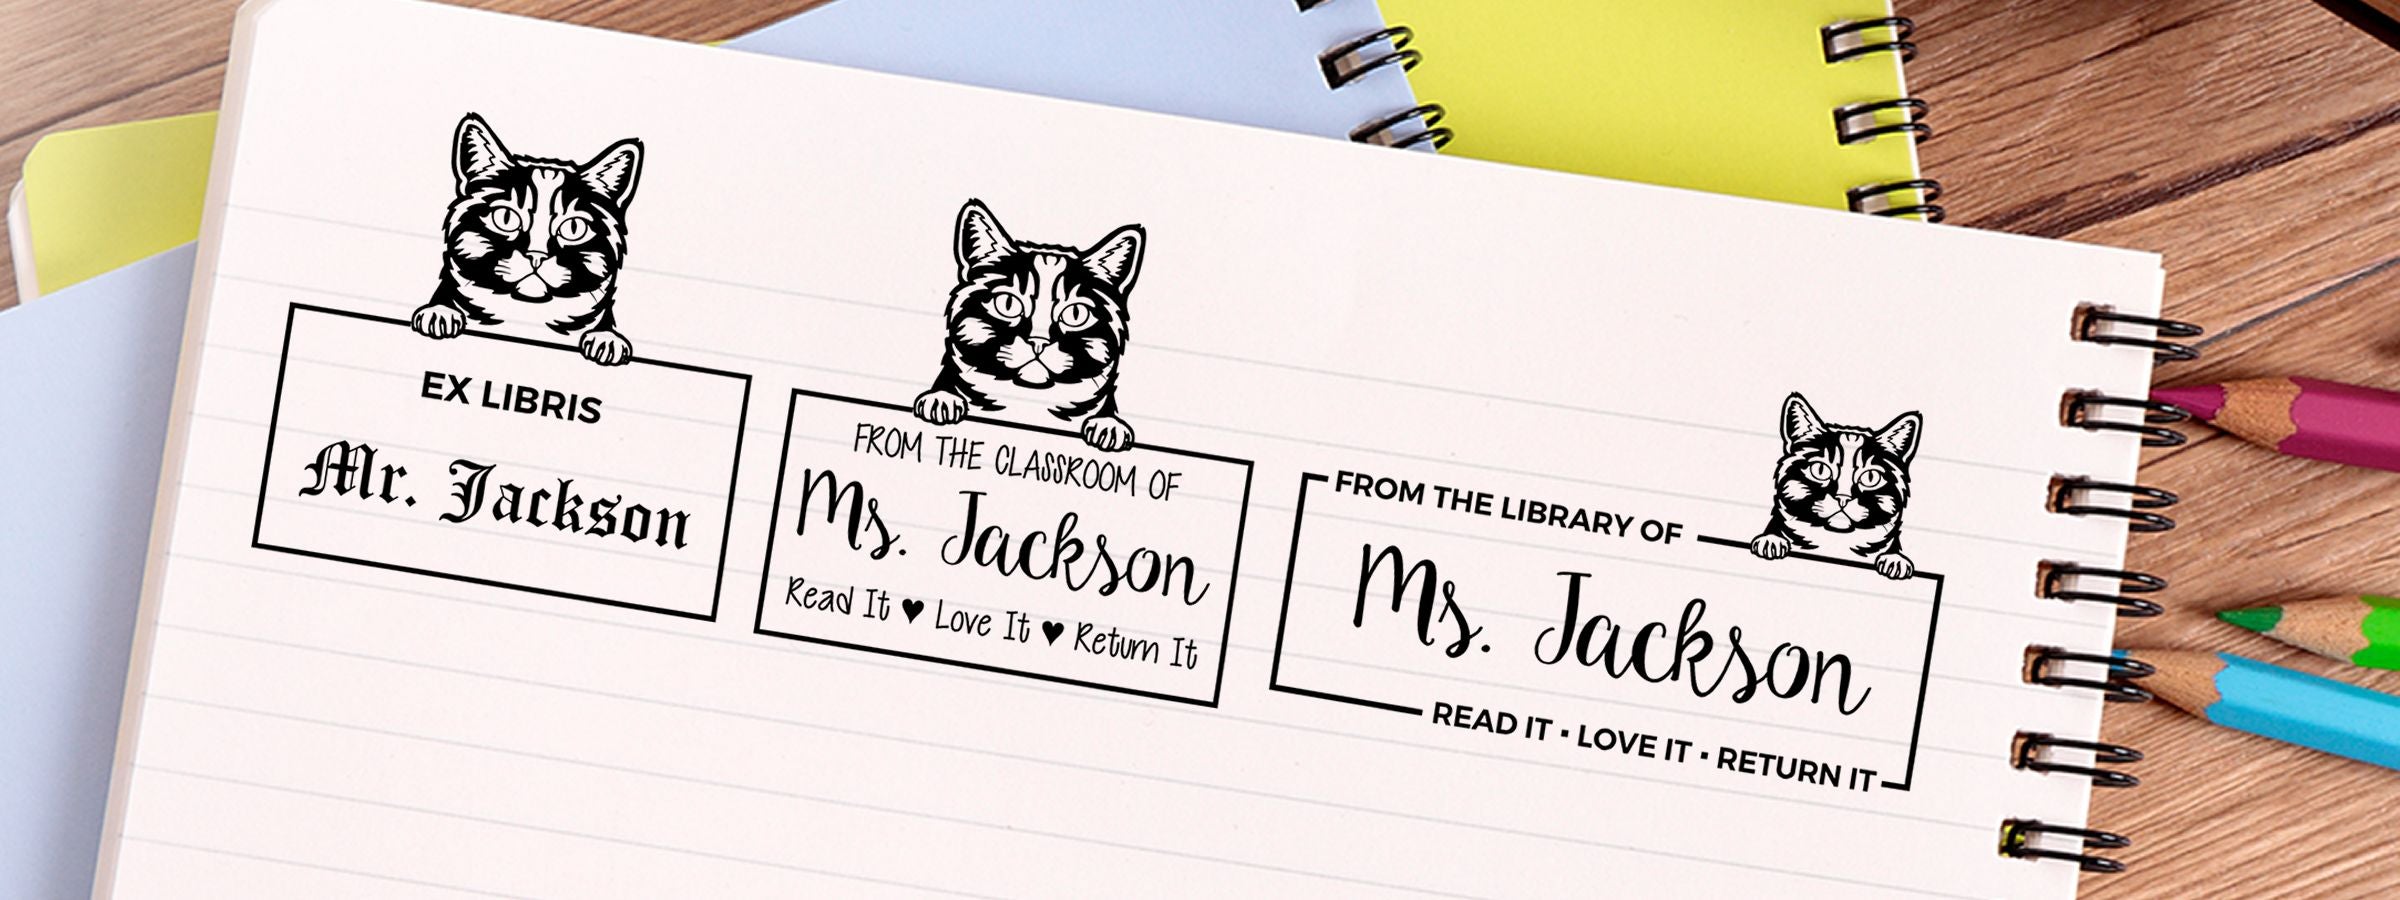 EX LIBRIS
Mr. Jackson
FROM THE CLASSROOM OF
Ms. Jackson
Read It ♥ Love It ♥ Return It
FROM THE LIBRARY OF
Ms. Jackson
READ IT • LOVE IT • RETURN IT